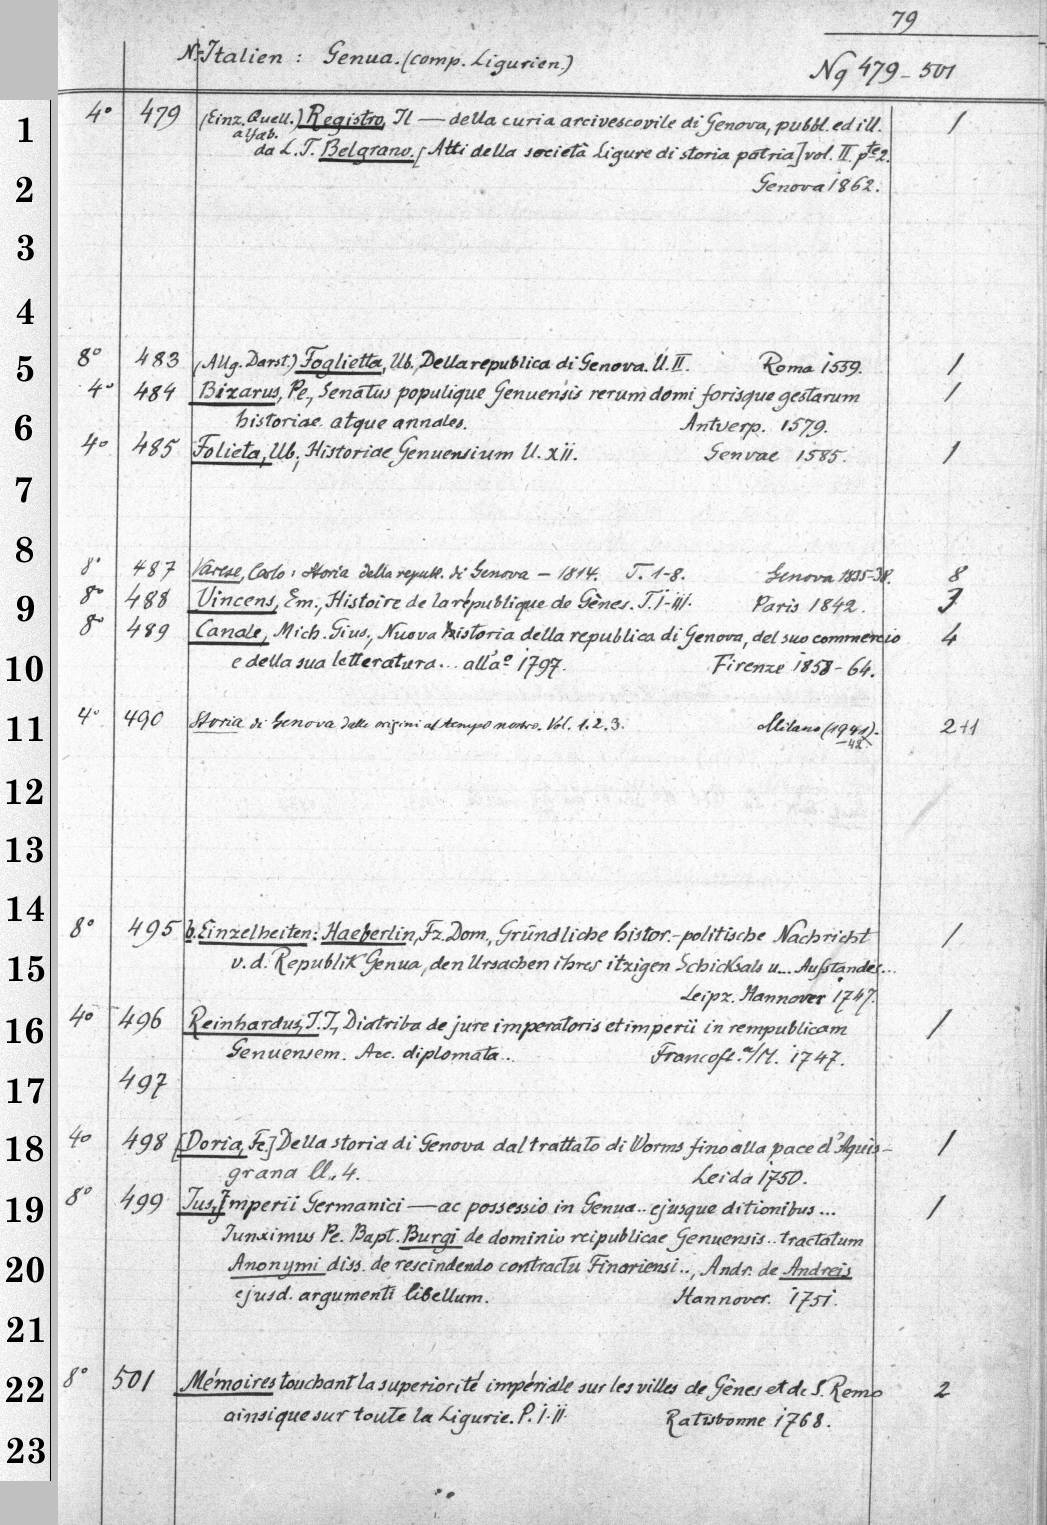 79
N-Italien : Genua. (comp. Ligurien.)
Ng 479-501
1
4° 479 (Einz. Quell.) Registro, Il — della curia arcivescovile di Genova, pubbl. ed ill. 1
alfab.
da L. T. Belgrano. [Atti della società ligure di storia patria] vol. II. pte 2.
2
Genova 1862.
3
4
5
8° 483 (Allg. Darst.) Foglietta, Ub., Della republica di Genova. ll. II. Roma 1559. 1
4° 484 Bizarus, Pe., Senatus populique Genuensis rerum domi forisque gestarum 1
6
historiae atque annales. Antverp. 1579.
4° 485 Folieta, Ub., Historiae Genuensium ll. xii. Genvae 1585. 1
7
8
8° 487 Varese, Carlo: Storia della republ. di Genova – 1814. T. 1-8. Genova 1835-38. 8
9
8° 488 Vincens, Em., Histoire de la république de Gênes. T. I-III. Paris 1842. 3
8° 489 Canale, Mich. Gius., Nuova historia della republica di Genova, del suo commercio 4
10
e della sua letteratura... all'a° 1797. Firenze 1858-64.
11
4° 490 Storia di Genova dalle origini al tempo nostro. Vol. 1. 2. 3. Milano (1941). 2+1
–42
12
13
14
8° 495 b. Einzelheiten: Haeberlin, Fz. Dom., Gründliche histor.-politische Nachricht 1
15
v. d. Republik Genua, den Ursachen ihres itzigen Schicksals u... Aufstandes...
Leipz. Hannover 1747.
16
4° 496 Reinhardus, J. J., Diatriba de jure imperatoris et imperii in rempublicam 1
Genuensem. Acc. diplomata... Francoft. a/M. 1747.
17
497
18
4° 498 [Doria, Fe.] Della storia di Genova dal trattato di Worms fino alla pace d'Aquis- 1
grana ll. 4. Leida 1750.
19
8° 499 Jus, Imperii Germanici — ac possessio in Genua... ejusque ditionibus ... 1
Junximus Pe. Bapt. Burgi de dominio reipublicae Genuensis... tractatum
20
Anonymi diss. de rescindendo contractu Finariensi..., Andr. de Andreis
ejusd. argumenti libellum. Hannover. 1751.
21
22
8° 501 Mémoires touchant la superiorité impériale sur les villes de Gênes et de S. Remo 2
ainsi que sur toute la Ligurie. P. I. II. Ratisbonne 1768.
23